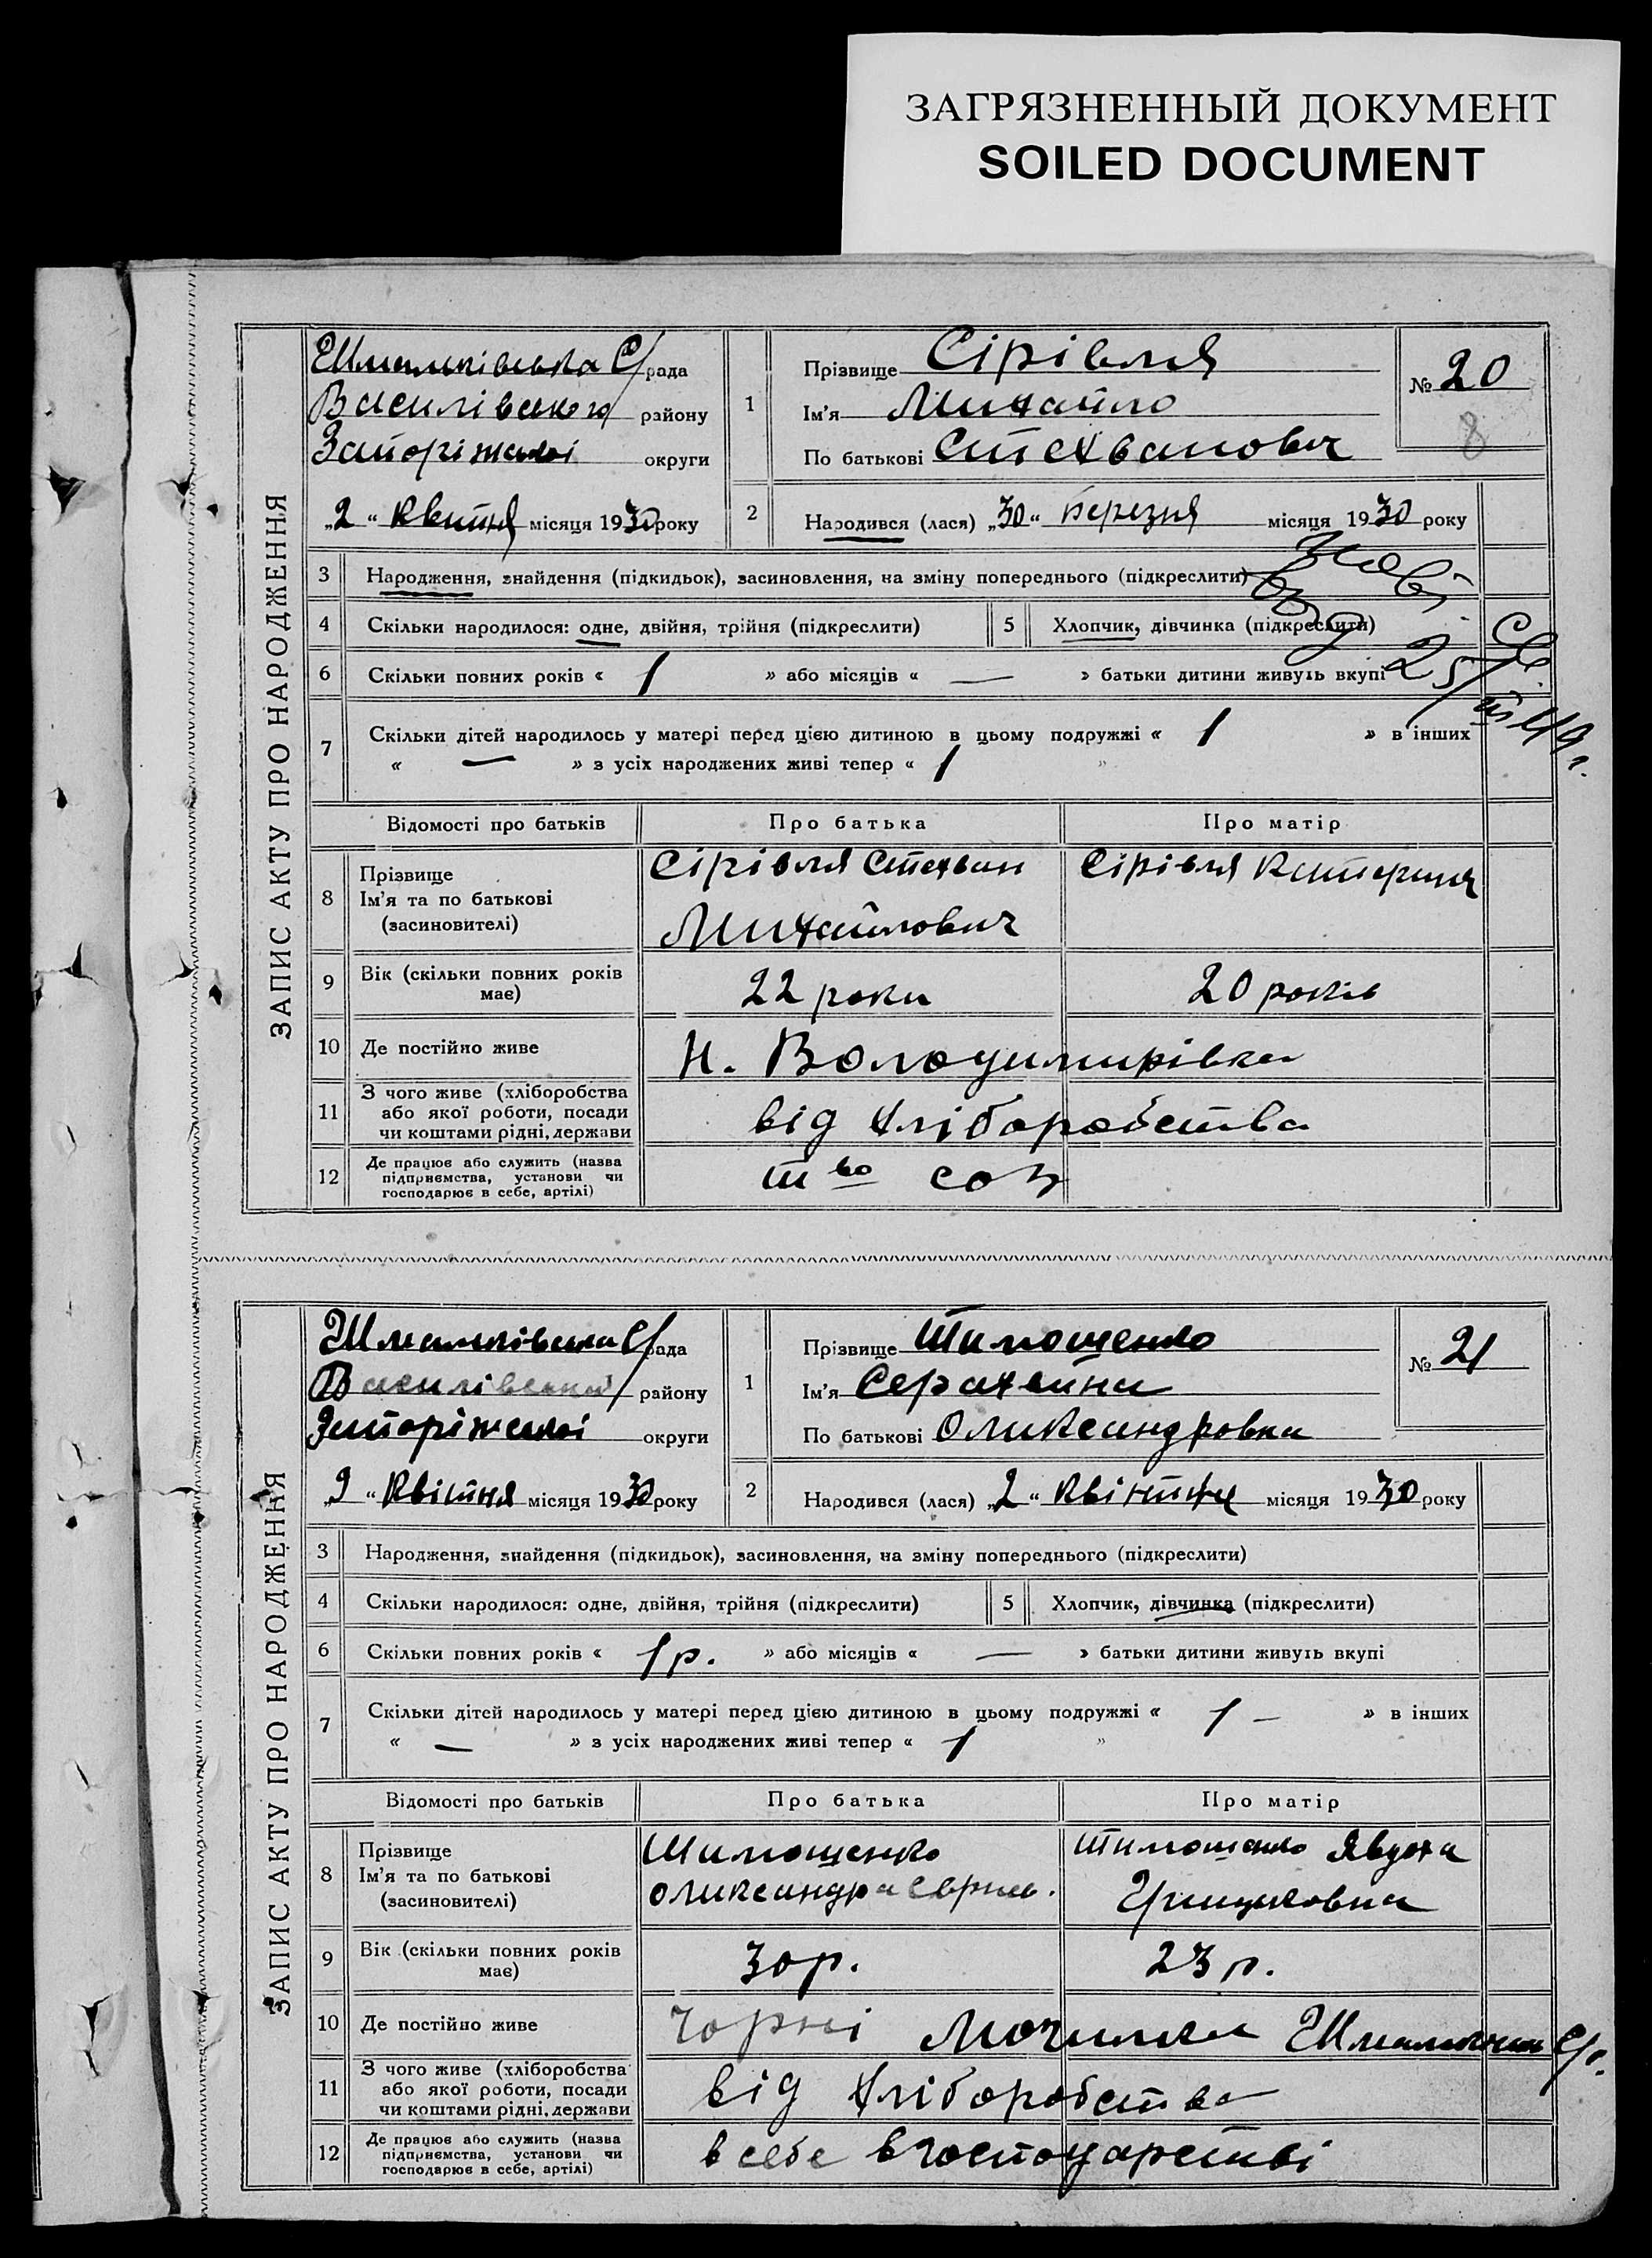 ЗАГРЯЗНЕННЫЙ ДОКУМЕНТ
SOILED DOCUMENT
ЗАПИС АКТУ ПРО НАРОДЖЕННЯ
С/рада
Василівського району
Запоріжської округи
„2“ Квітня місяця 1930 року
1
Прізвище Сірівля
Ім'я Михайло
По батькові Стехванович
№ 20
8
2
Народився (лася) „30“ Березня місяця 1930 року
3 Народження, знайдення (підкидьок), засиновлення, на зміну попереднього (підкреслити)
4 Скільки народилося: одне, двійня, трійня (підкреслити) 5 Хлопчик, дівчинка (підкреслити)
6 Скільки повних років « 1 » або місяців « — » батьки дитини живуть вкупі
7 Скільки дітей народилось у матері перед цією дитиною в цьому подружжі « 1 » в інших
« — » з усіх народжених живі тепер « 1 »
Відомості про батьків Про батька Про матір
8 Прізвище
Ім'я та по батькові
(засиновителі)
Сірівля Стехван
Михайлович
Сірівля Катерина
9 Вік (скільки повних років
має)
22 роки 20 років
10 Де постійно живе Н. Володимирівка
11 З чого живе (хліборобства
або якої роботи, посади
чи коштами рідні, держави
від хліборобства
12 Де працює або служить (назва
підприємства, установи чи
господарює в себе, артілі)
т во соз
ЗАПИС АКТУ ПРО НАРОДЖЕННЯ
С/рада
району
Запоріжської округи
„9“ Квітня місяця 1930 року
1
Прізвище Тимошенко
Ім'я Серахвина
По батькові Олександровна
№ 21
2
Народився (лася) „2“ місяця 1930 року
3 Народження, знайдення (підкидьок), засиновлення, на зміну попереднього (підкреслити)
4 Скільки народилося: одне, двійня, трійня (підкреслити) 5 Хлопчик, дівчинка (підкреслити)
6 Скільки повних років « 1 р. » або місяців « — » батьки дитини живуть вкупі
7 Скільки дітей народилось у матері перед цією дитиною в цьому подружжі « 1 – » в інших
« — » з усіх народжених живі тепер « 1 »
Відомості про батьків Про батька Про матір
8 Прізвище
Ім'я та по батькові
(засиновителі)
Тимошенко
Тимошенко Явдоха
Грицьковна
9 Вік (скільки повних років
має)
30 р. 23 р.
10 Де постійно живе Чорні
11 З чого живе (хліборобства
або якої роботи, посади
чи коштами рідні, держави
від хліборобства
12 Де працює або служить (назва
підприємства, установи чи
господарює в себе, артілі)
в себе в господарстві